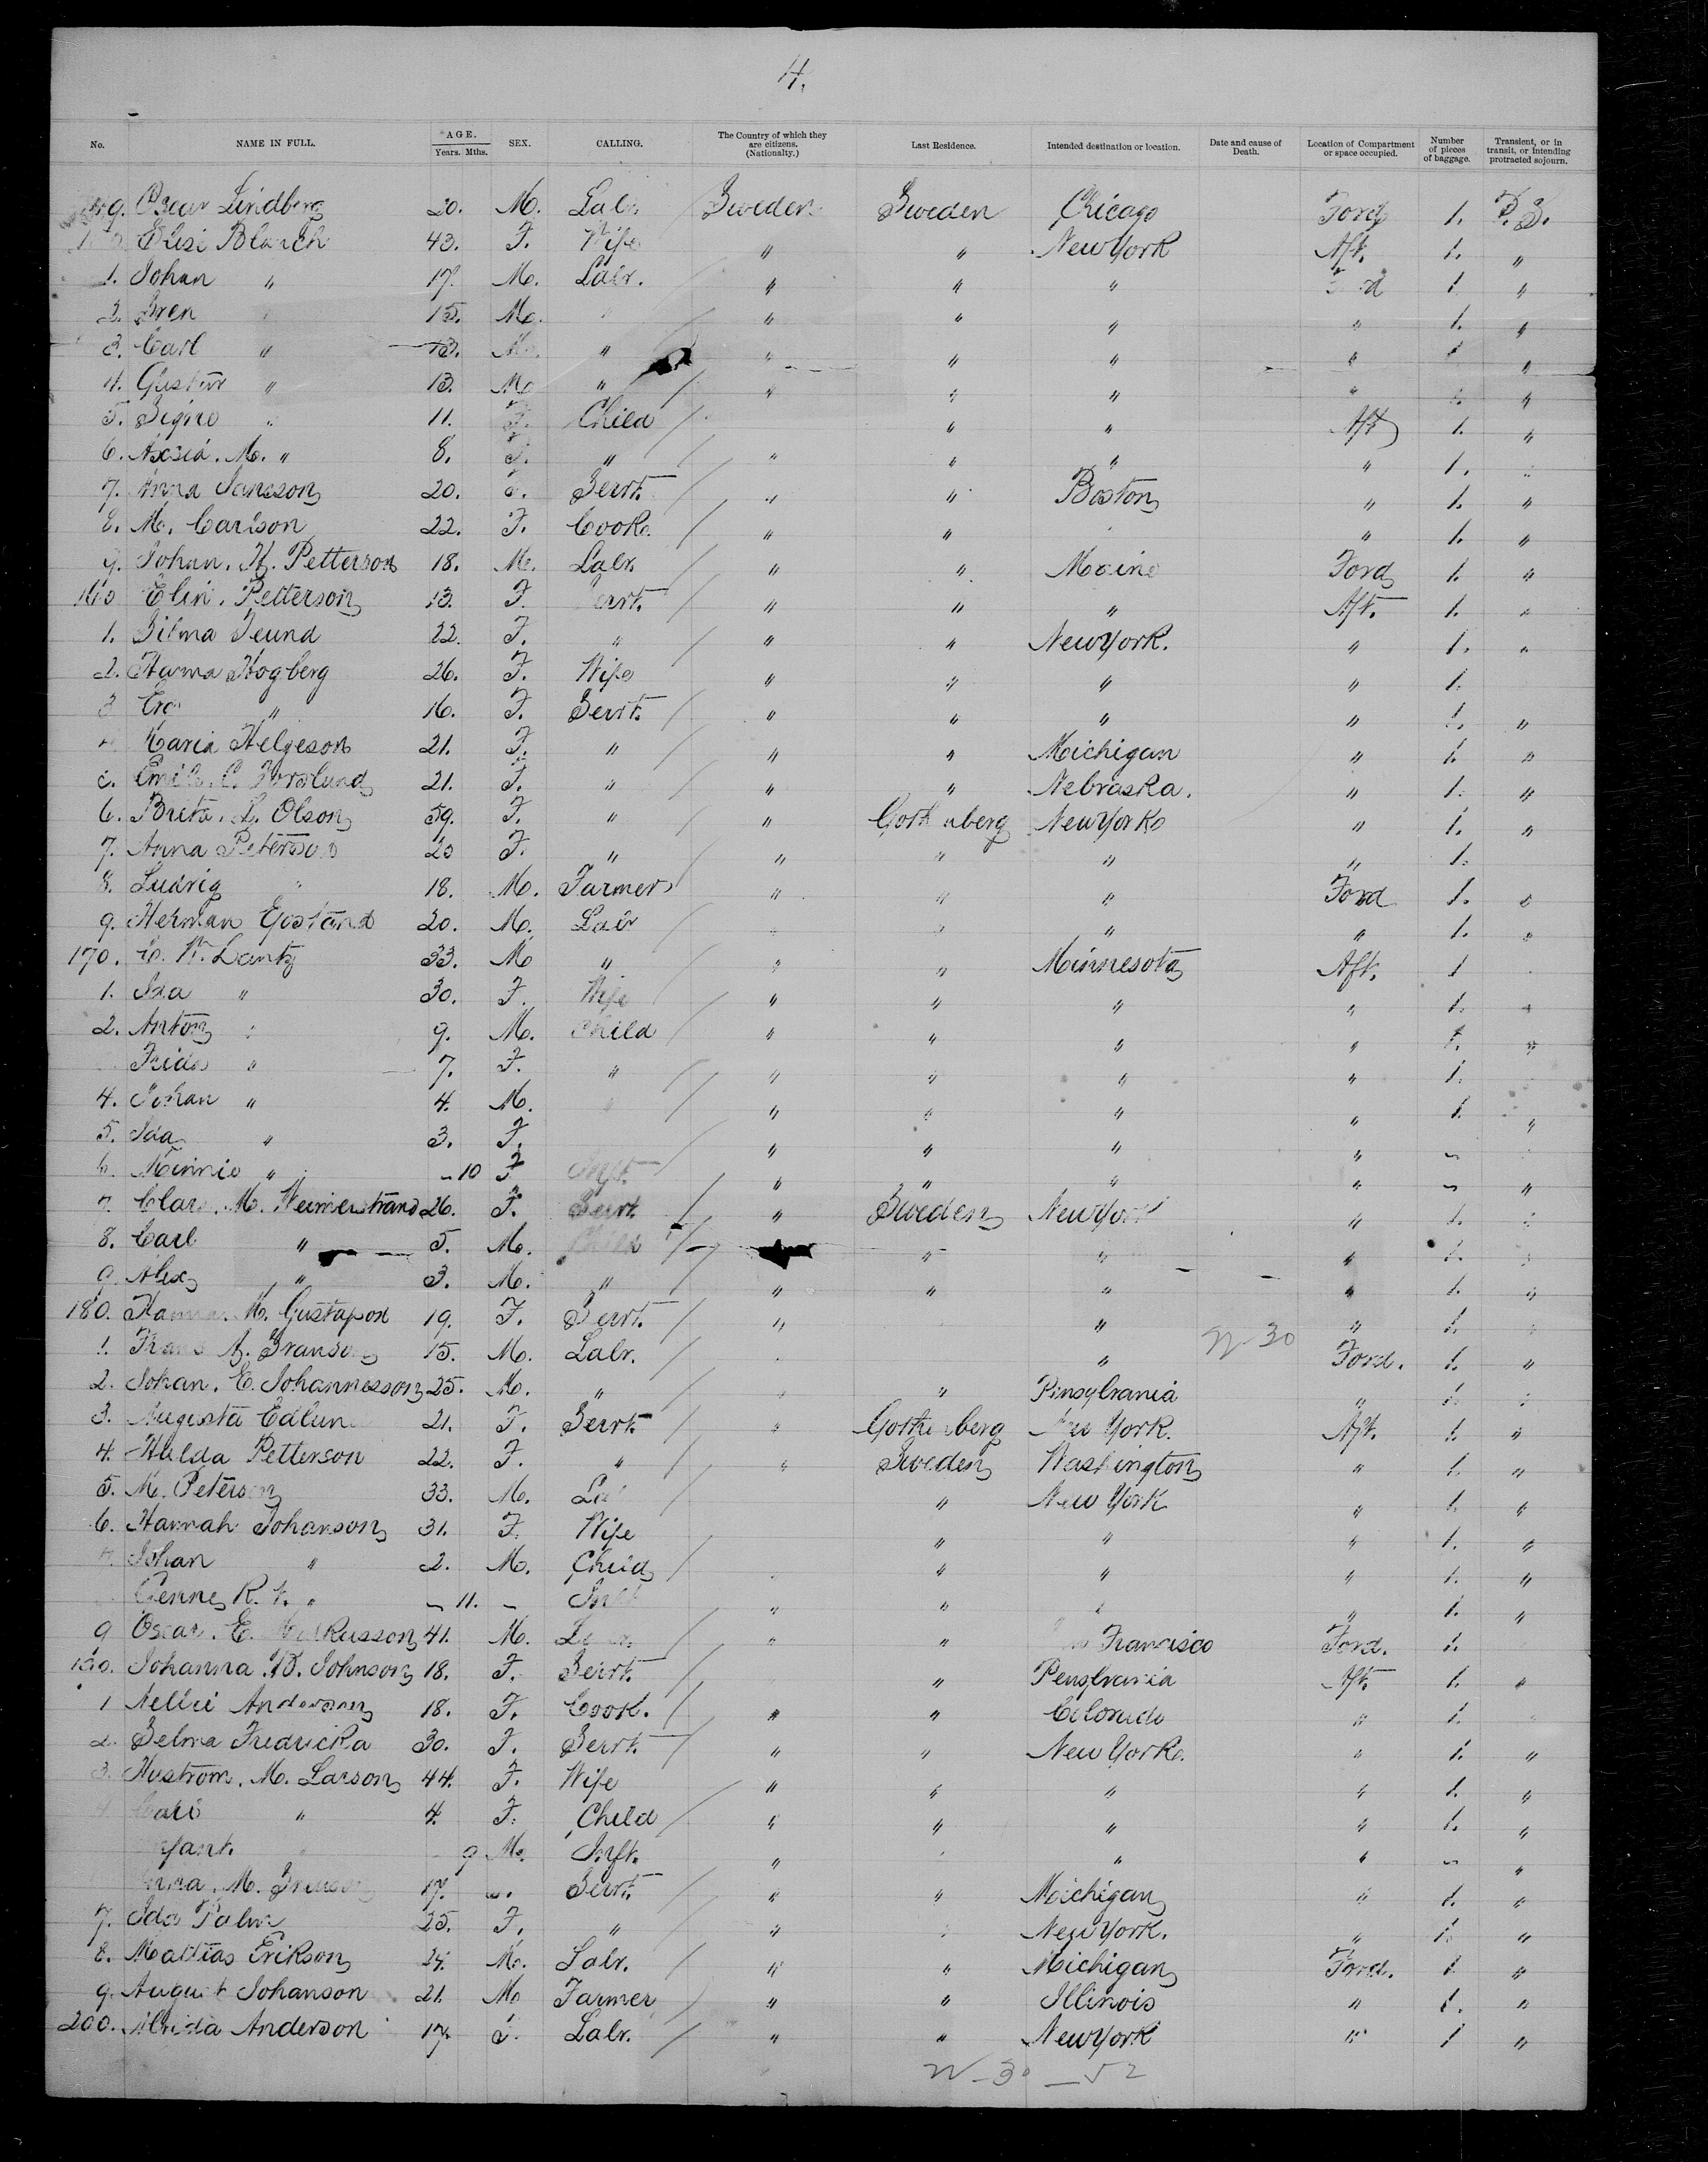 4.
No. NAME IN FULL. AGE. Years. Mths. SEX. CALLING. The Country of which they are citizens. (Nationality.) Last Residence. Intended destination or location. Date and cause of Death. Location of Compartment or space occupied. Number of pieces of baggage. Transient, or in transit, or intending protracted sojourn.
9. Oscar Lindberg 20. M. Labr. Sweden Sweden Chicago Ford 1. P.S.
Elisi 43. F. Wife " " New York Aft. 1. "
1. Johan " 17. M. Labr. " " " 1 "
2. Sven 15. M. " " " " 1. "
3. Carl " 13. M. " " " " " 1 "
4. Gustav " 13. M " " " " " 1. "
5. Signe " 11. F. Child " " Aft 1. "
6. M. " 8. F. " " " " " 1. "
7. Anna Jansson 20. F. Servt. " " Boston " 1. "
8. M. Carlson 22. F. Cook. " " " 1. "
9. Johan. A. Petterson 18. M. Labr. " " Maine Ford 1. "
160 Elin. Petterson 13. F. Servt. " " " Aft. 1. "
1. 22. F. " " " New York. " 1. "
2. Hogberg 26. F. Wife " " " " 1.
3 " 16. F. Servt. " " " " 1. "
Maria Helgeson 21. F. " " " Michigan " 1. "
C. Forslund 21. F. " " " Nebraska. " 1. "
6. L. Olson 59. F. " " Gothenberg New York " 1. "
7. Anna Peterson 20 F. " " " " " 1.
8. Ludvig " 18. M. Farmer " " " Ford 1. "
9. Herman 20. M. Labr " " " " 1. "
170. Lantz 33. M " " " Minnesota Aft. 1
1. Ida " 30. F. Wife " " " " 1. "
2. Anton " 9. M. Child " " " " 1. "
Frida " 7. F. " " " " " 1.
4. Johan " 4. M. " " " " " 1. "
5. Ida " 3. F. " " " "
6. Minnie " - 10 F Inft. " " " " - "
7. M. 26. F. Servt. " Sweden New York " 1. "
8. Carl " 5. M. Child " " " 1. "
9. Alex " 3. M. " " " " " 1. "
180. Hanna. M. Gustafson 19. F. Servt. " " " 1. "
1. Frans A. 15. M. Labr. " N-30 Ford. 1. "
2. Johan. E. Johannesson 25. M. " " " Pinsylvania " 1. "
3. Augusta Edlun 21. F. Servt. " Gothenberg New York. Aft. 1. "
4. Hulda Petterson 22. F. " " Sweden Washington " 1. "
5. M. Peterson 33. M. Labr " New York " 1. "
6. Hannah Johanson 31. F. Wife " " " 1. "
7. Johan " 2. M. Child " " " 1. "
R. " - 11. - Inft " " " 1. "
9 Oscar. E. 41. M. " " San Francisco Ford. 1.
190. Johanna. B. Johnson 18. F. Servt. " Pensylvania Aft. 1. "
1 Nellie Anderson 18. F. Cook. " " Colorado " 1. "
2. Selma Fredricka 30. F. Servt. " " New York. " 1. "
3. M. Larson 44. F. Wife " " " " 1. "
4. " 4. F. Child " " " " 1. "
Infant. 9 M. Inft. " " " - "
M. 17. Servt. " " Michigan " 1. "
7. Ida Palm 25. F. " " " New York. " 1. "
8. Mattias Erikson 24. M. Labr. " " Michigan Ford. 1 "
9. August Johanson 21. M Farmer " " Illinois " 1. "
200. Anderson 17. F. Labr. " " New York " 1 "
N-30 - 52